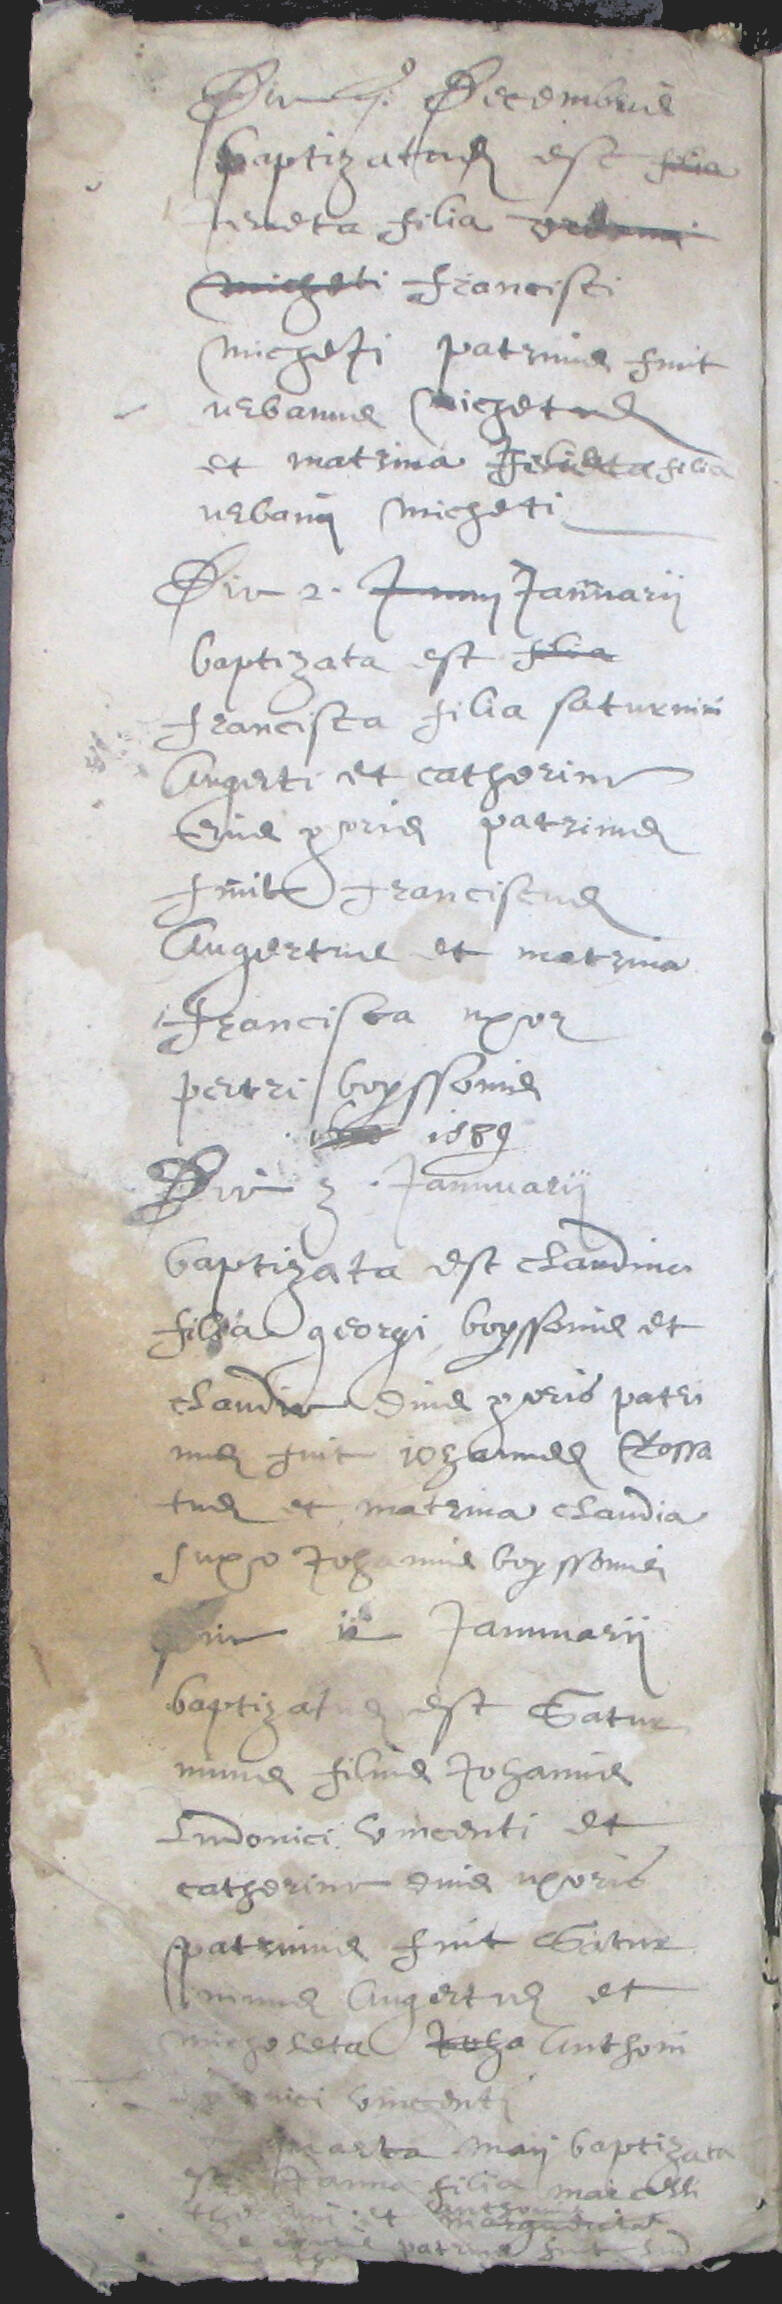 Die 9° Decembris
baptizatus est filia
filia
francisci
micheti patrinus fuit
urbanus michetus
et matrina filia
urbani micheti
Die 2. Januarii
baptizata est filia
francisca filia saturnini
Augerti et catherine
eius uxoris patrinus
fuit franciscus
Augertus et matrina
francisca uxor
petri boyssonis
1589
Die 3 . Jannuarii
baptizata est claudina
filia georgi boyssonis et
claudie eius uxoris patri
nus fuit johannes Rossa
tus et matrina claudia
uxo Johannis boyssonis
Die ii Jannuarii
baptizatus est Satur
ninus filius Johannis
Ludovici vincenti et
catherine eius uxoris
patrinus fuit Satur
ninus Augertus et
micholeta Joha Anthoni
vincenti
quarta maii baptizata
est Janna filia marcelli
et
patrinus fuit